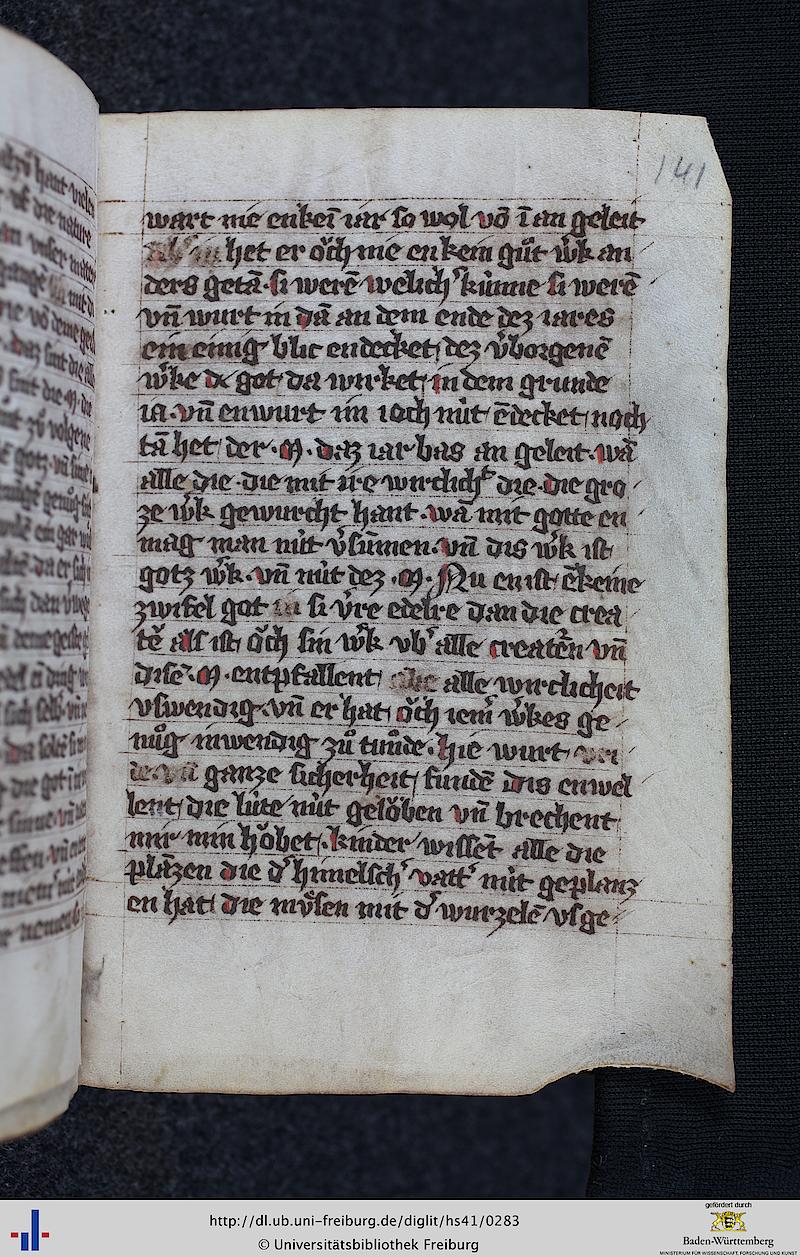 141
wart nie enkeı̄ iar so wol vō ī an geleit
het er oͮch nie en kein guͦt w̄k an
ders getā · si werē welich kúnne si werē
vn̄ wurt in dā an dem ende dez iares
ein einig blic endecket dez v̄borgenē
w̄ke dc got da wirket in dem grunde
ia · vn̄ enwurt im ioch nút ēdecket noch
tā het der · M̄ · daz iar bas an geleit · wā
alle die · die mit ire wirclich die · die gro
ze w̄k gewurcht hant · wā mit gotte en
mag man nút v̄sumen · vn̄ dis w̄k ist
gotz w̄k · vn̄ nút dez · M̄ · Nu enist ēkeine
zwifel got si v̄re edelre dan die crea
tē als ist oͮch sin w̄k vb alle creatē̄n vn̄
disē · M̄ · entpfallent alle wirclicheit
vswendig · vn̄ er hat oͮch iem w̄kes ge
nuͦg inwendig zuͦ tuͦnde · hie wurt
ganze sicherheit funden dis enwel
lent die lúte nút geloͮben vn̄ brechent
mir min hoͮbet · kinder wissēt alle die
plāzen die d himelsch vatt nút geplanz
en hat die muͤsen mit d wurzelē vsge
http://dl.ub.uni-freiburg.de/diglit/hs41/0283
© Universitätsbibliothek Freiburg
gefördert durch
Baden-Württemberg
MINISTERIUM FÜR WISSENSCHAFT, FORSCHUNG UND KUNST